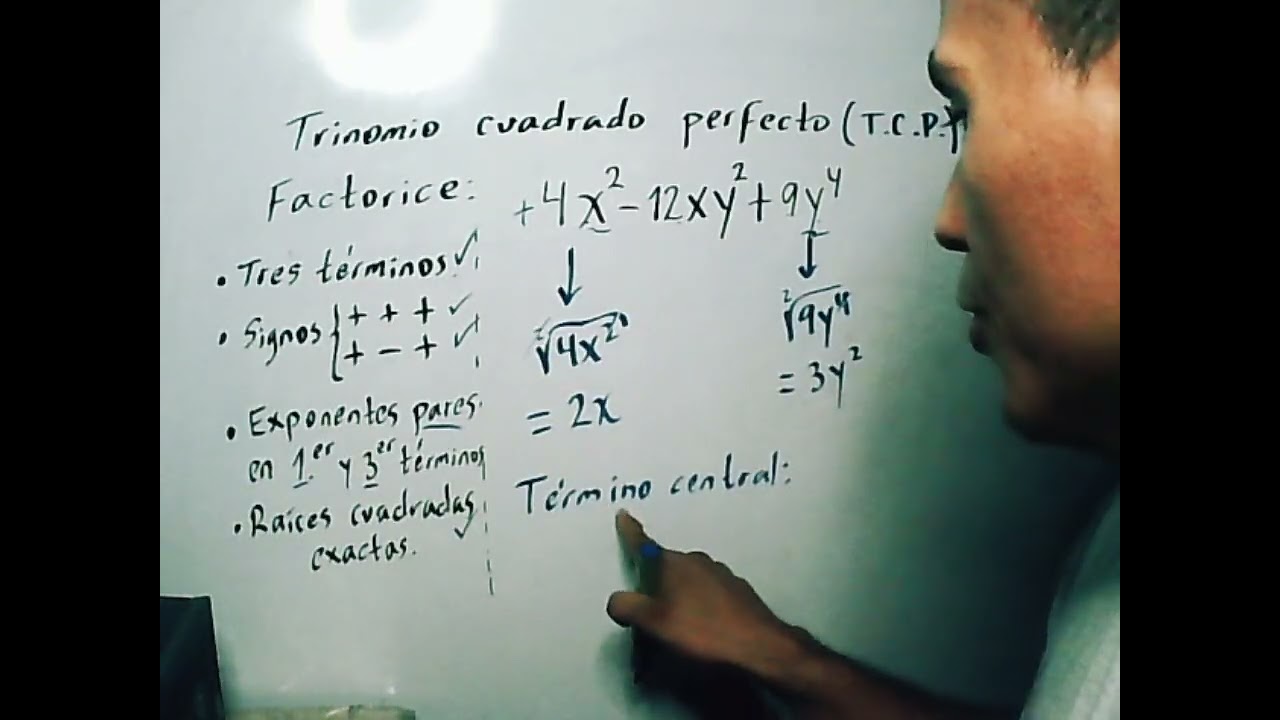 Trinomio cuadrado perfecto (T.C.P.)
Factorice: +4x² - 12xy² + 9y⁴
• Tres términos ✓
• Signos { + + + ✓
+ - + ✓
• Exponentes pares
en 1.er y 3er términos
• Raíces cuadradas ✓
exactas.
²√4x²
= 2x
²√9y⁴
= 3y²
Término central: